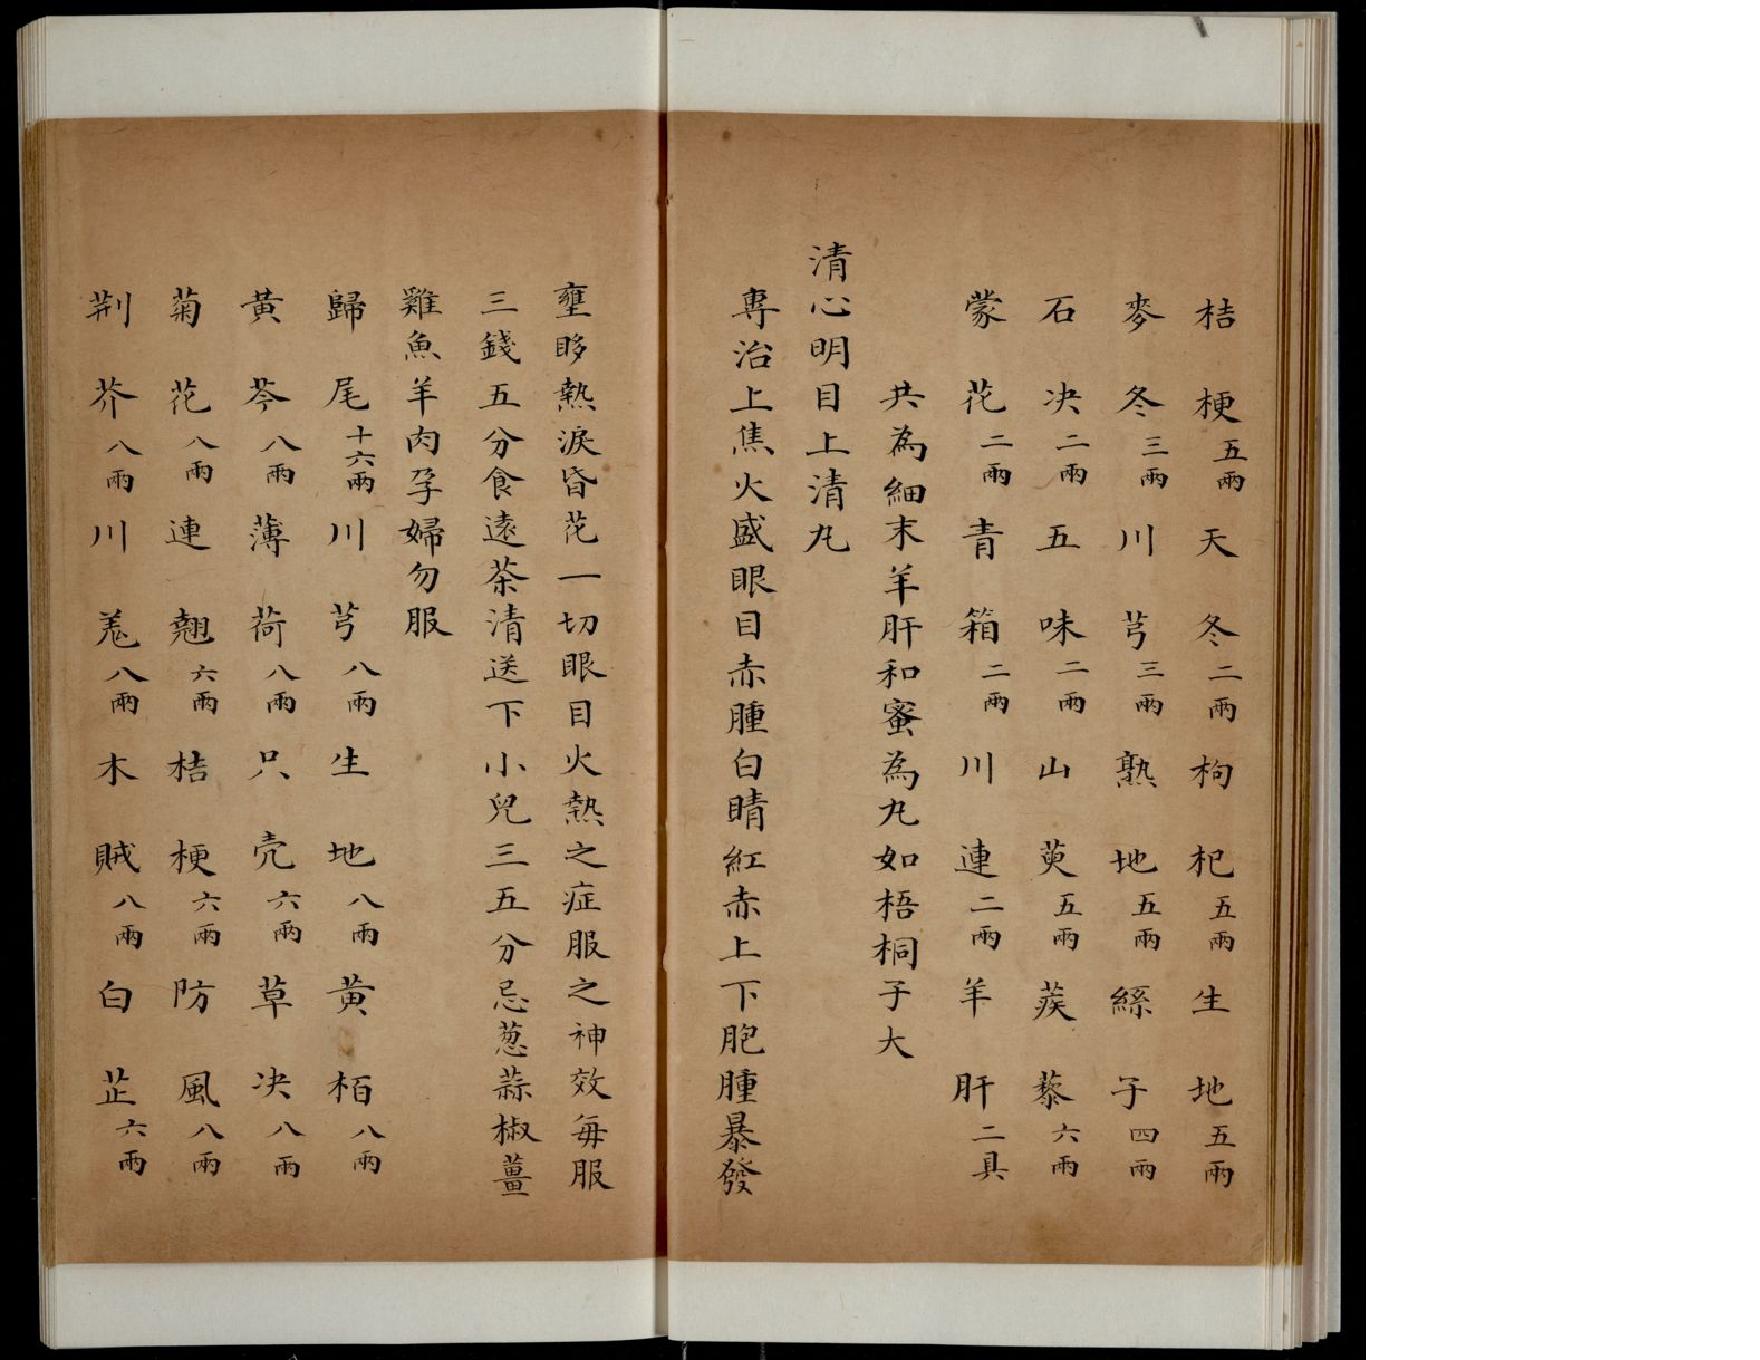 桔梗五兩天冬二兩枸杞五兩生地五兩
麥冬三兩川芎三兩熟地五兩絲子四兩
石决二兩五味二兩山萸五兩蒺藜六兩
蒙花二兩青箱二兩川連二兩羊肝二具
共為細末羊肝和蜜為丸如梧桐子大
清心明目上清丸
專治上焦火盛眼目赤腫白睛紅赤上下胞腫暴發
壅眵熱淚昏花一切眼目火熱之症服之神效每服
三錢五分食遠茶清送下小兒三五分忌葱蒜椒薑
雞魚羊肉孕婦勿服
歸尾十六兩川芎八兩生地八兩黄栢八兩
黄芩八兩薄荷八兩只壳六兩草决八兩
菊花八兩連翹六兩桔梗六兩防風八兩
荆芥八兩川羗八兩木賊八兩白芷六兩